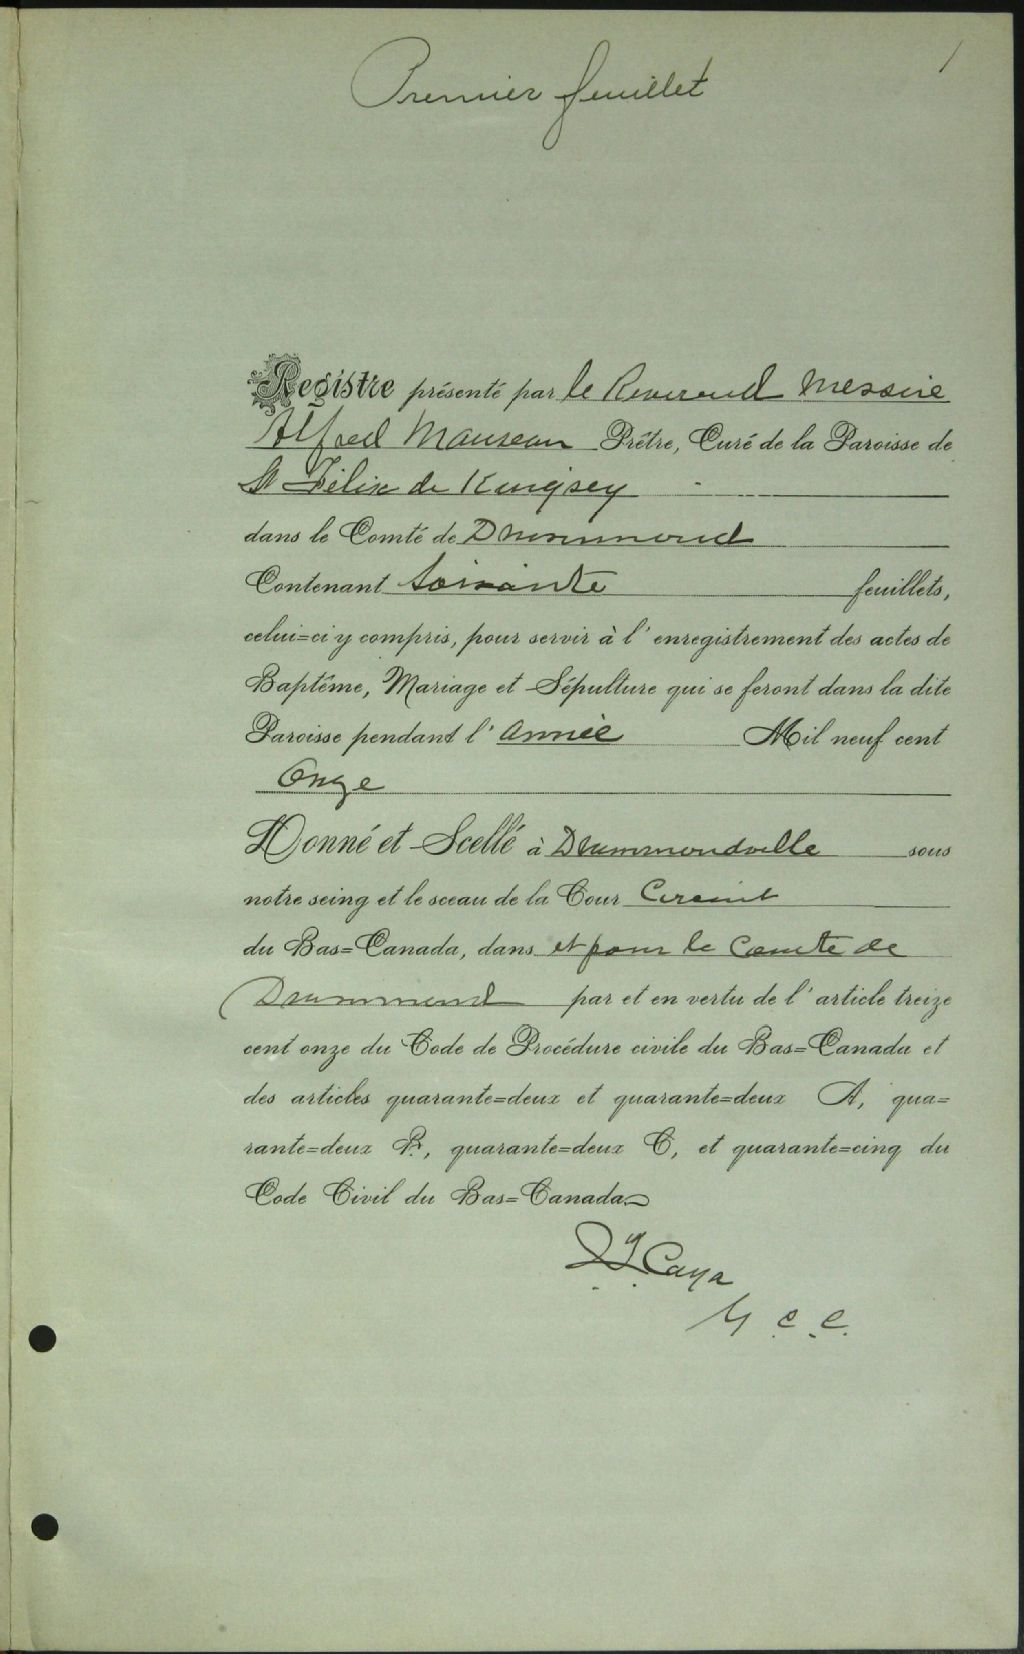 1
Premier feuillet
Registre présenté par le Reverend Messire
Alfred Manseau Prêtre, Curé de la Paroisse de
St Félix de Kingsey
dans le Comté de Drummond
Contenant Soixante feuillets,
celui=ci y compris, pour servir à l'enregistrement des actes de
Baptême, Mariage et Sépulture qui se feront dans la dite
Paroisse pendant l'année Mil neuf cent
Onze
Donné et Scellé à Drummondville sous
notre seing et le sceau de la Cour Circuit
du Bas=Canada, dans et pour le Comte de
Drummond par et en vertu de l'article treize
cent onze du Code de Procédure civile du Bas=Canada et
des articles quarante=deux et quarante=deux A, qua=
rante=deux B, quarante=deux C, et quarante=cinq du
Code Civil du Bas=Canada
Caya
C. C.